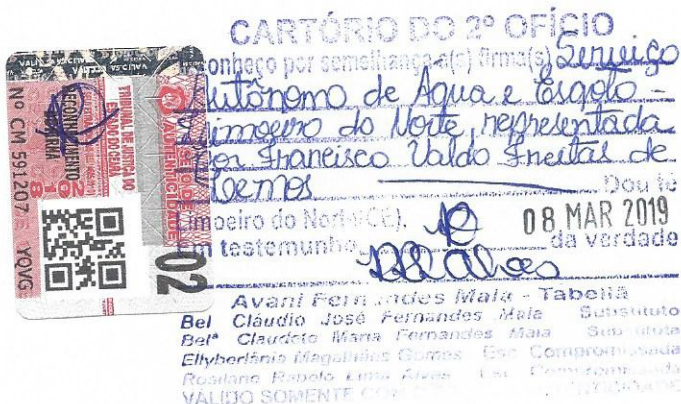 CARTÓRIO DO 2º OFÍCIO
Reconheço por semelhança a(s) firma(s) Serviço
Autônomo de Agua e Esgoto -
Limoeiro do Norte, representada
por Francisco Valdo Freitas de
Lemos Dou fé
Limoeiro do Norte (CE), 08 MAR 2019
Em testemunho da verdade
Avani Fernandes Maia - Tabeliã
Bel Cláudio José Fernandes Maia Substituto
Belª Claudete Maria Fernandes Maia Substituta
Ellyberlânia Magalhães Gomes Esc Compromissada
Rosilane Rabelo Lima Alves Esc Compromissada
VÁLIDO SOMENTE COM AUTENTICIDADE
TRIBUNAL DE JUSTIÇA DO
ESTADO DO CEARÁ
RECONHECIMENTO
DE FIRMA
2018
SELO DE
AUTENTICIDADE
Nº CM 591207 YQVG
02